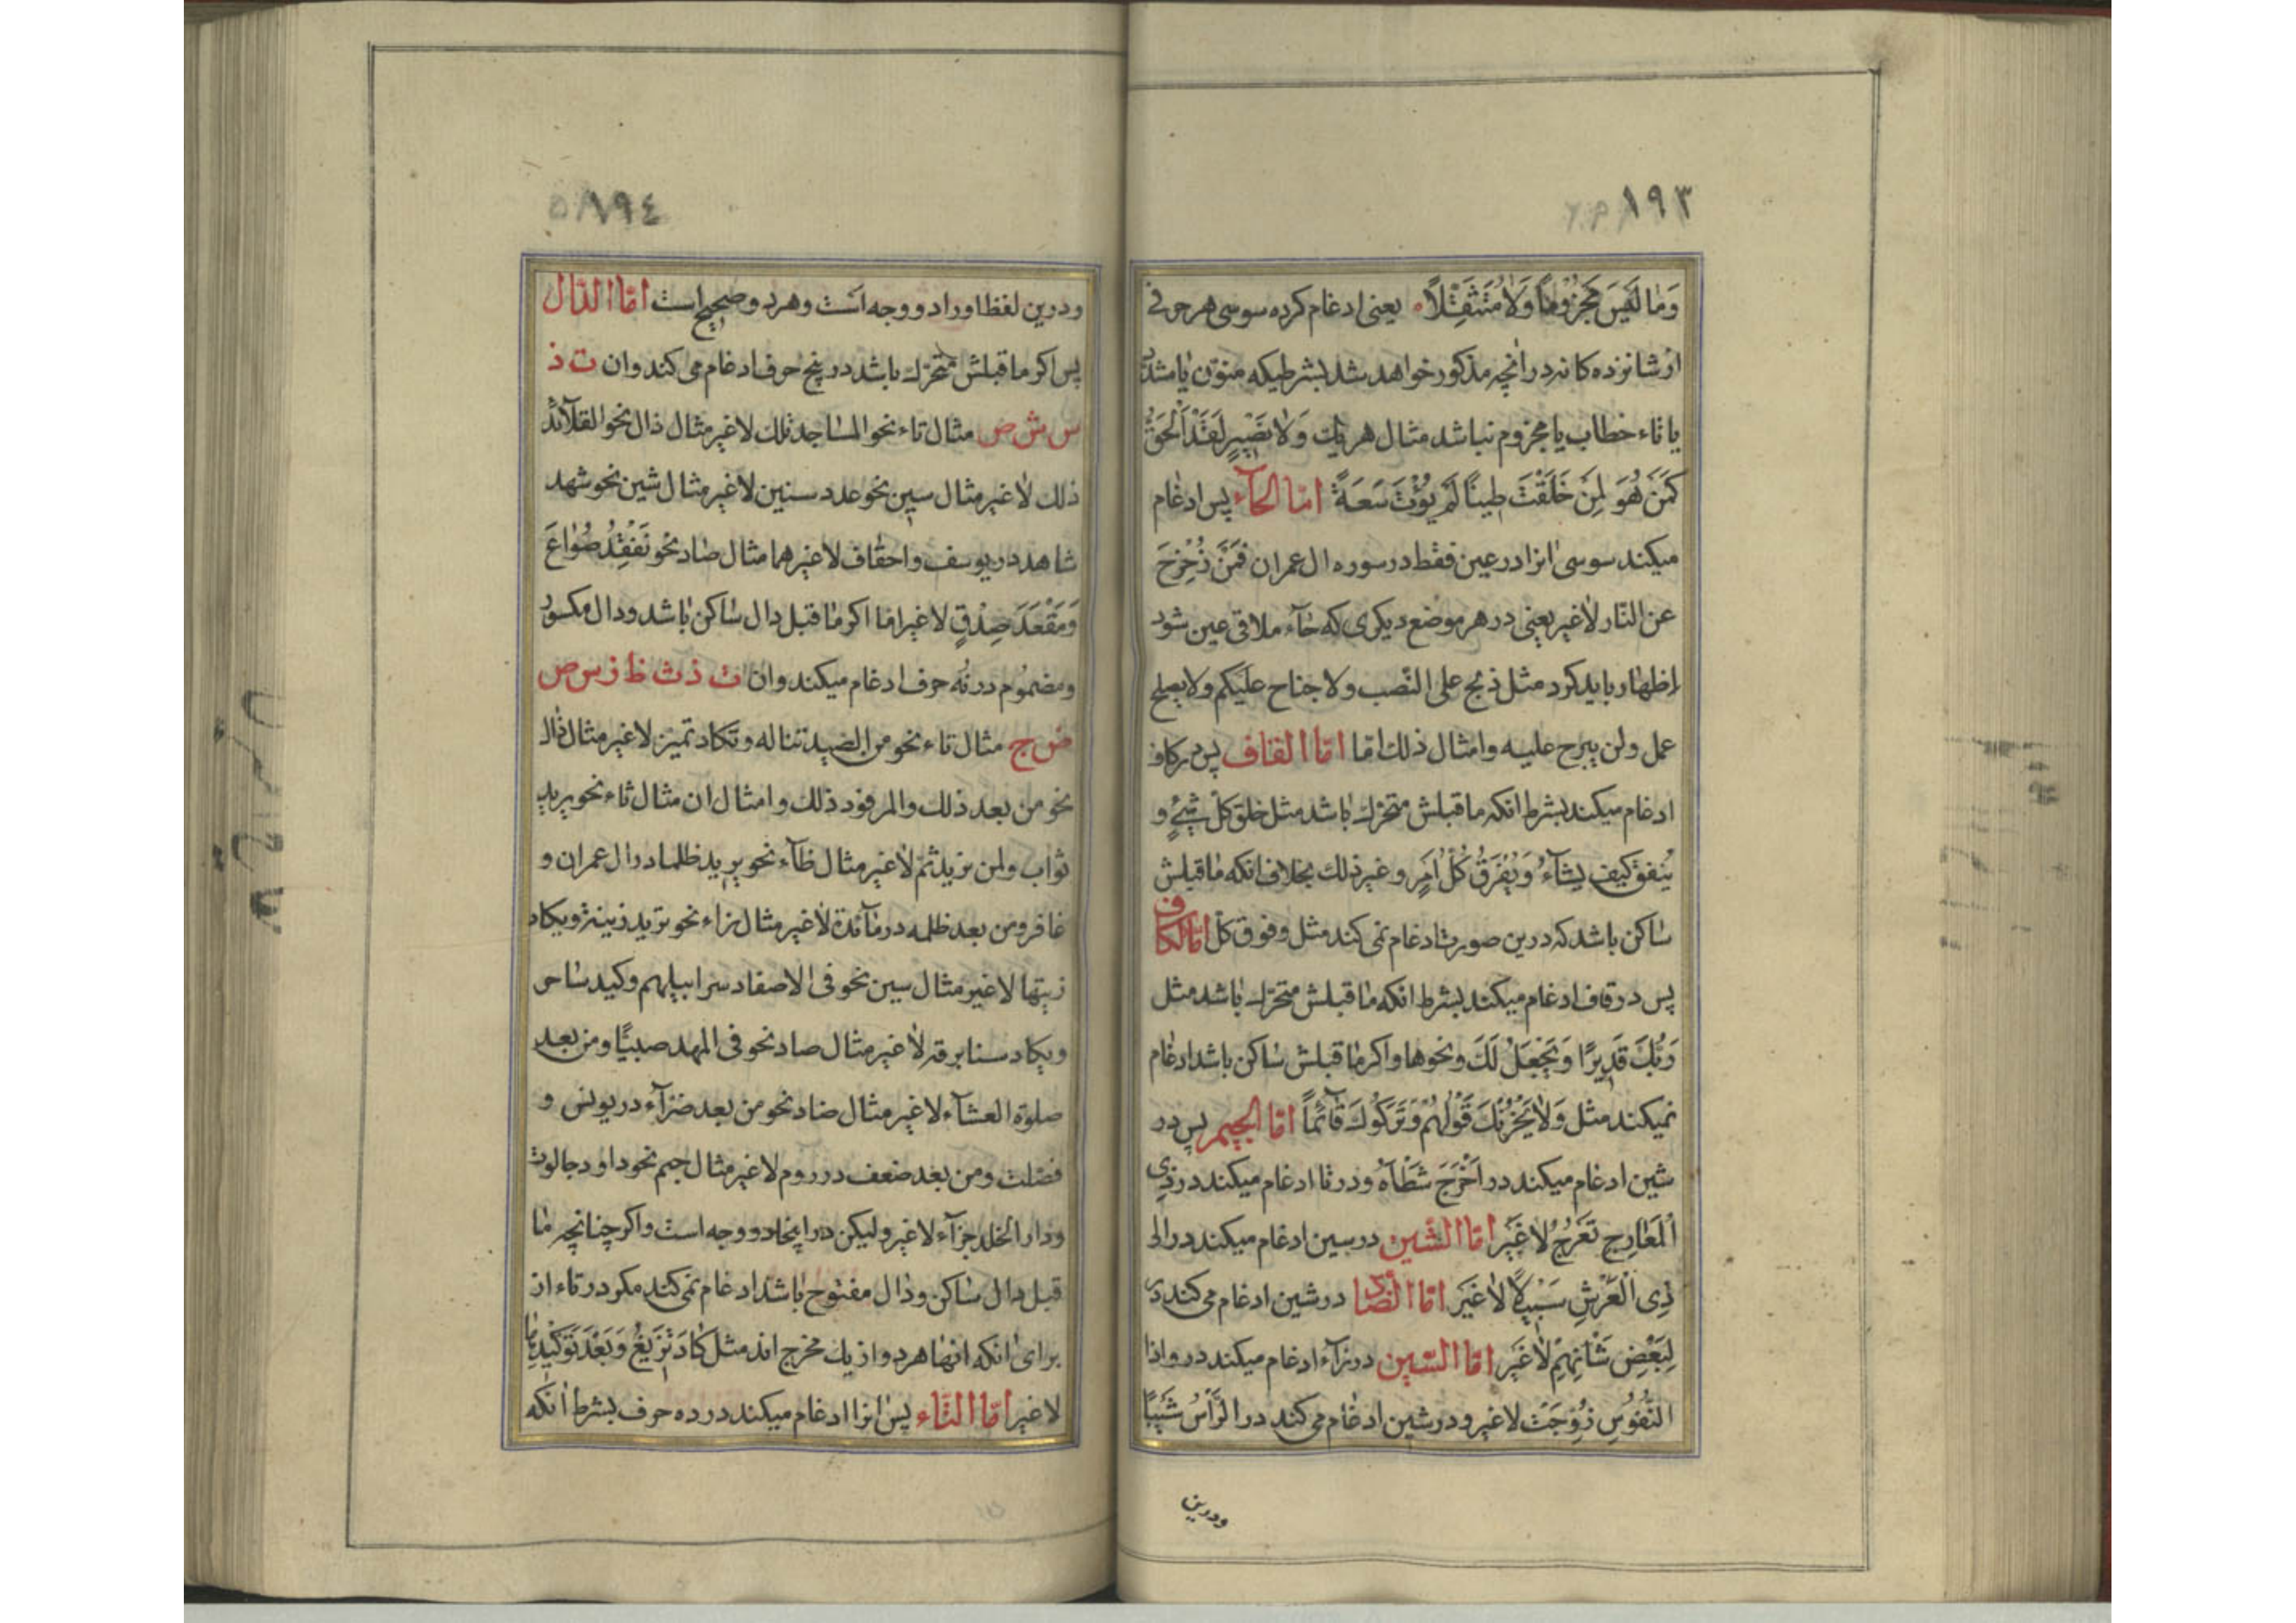 ١٩٣
وَمٰا لَیْسَ مَجْزُوْمًا وَلاٰ مُتَثَقِّلًا ه یعنی ادغام کرده سوسی هر حرفی
از شانزده کانه در آنچه مذکور خواهد شد بشرطیکه منوّن یا مشدد
یا تاء خطاب یا مجزوم نباشد مثال هر یك وَلاٰ نَصِیْرٍ لَقَدْ اَلْحَقُّ
کَمَنْ هُوَ لِمَنْ خَلَقْتَ طِینًا لَمْ یُؤْتَ سَعَةً امّا الحآء پس ادغام
میکند سوسی انرا در عین فقط در سوره ال عمران فَمَنْ زُحْزِحَ
عن النّار لاٰغیر یعنی در هر موضع دیکری که حٰآء ملاقی عین شود
اظهار باید کرد مثل ذبح علی النّصب ولا جناح علیکم ولا یصلح
عمل ولن یبرح علیه وامثال ذلك امّا امّا القاف پس در کاف
ادغام میکند بشرط انکه ما قبلش متحرّك باشد مثل خلق کلّ شَیْءٍ و
یُنفق کیف یشآءُ وَیُفْرَقُ کُلُّ اَمْرٍ وغیر ذلك بخلاف انکه مٰا قبلش
سٰاکن باشد که درین صورت ادغام نمی کند مثل وفوق کلّ امّا الکاف
پس در قاف ادغام میکند بشرط انکه مٰا قبلش متحرّك باشد مثل
رَبُّكَ قَدِیرًا وَیَجْعَلْ لَكَ ونحوها واکر مٰا قبلش سٰاکن باشد ادغام
نمیکند مثل وَلاٰ یَحْزُنْكَ قَوْلُهُمْ وَتَرَکُوكَ قٰآئمًا امّا الجیم پس در
شین ادغام میکند در اَخْرَجَ شَطْأَهُ ودر تا ادغام میکند در ذِی
الْمَعٰارِجِ تَعْرُجُ لاٰغَیْر امّا الشّین در سین ادغام میکند در الی
ذِی الْعَرْشِ سَبِیلًا لاٰغَیْرَ امّا الضّاد در شین ادغام می کند در
لِبَعْضِ شَأْنِهِمْ لاٰغَیْر امّا السّین در زآء ادغام میکند در واذا
النُّفُوْسُ زُوِّجَتْ لاغیر ودر شین ادغام می کند در الرَّاْسُ شَیْبًا
ودرین
١٩٤
ودرین لفظ اورا دو وجه است وهر دو صحیح است امّا الدّال
پس اکر ما قبلش متحرّك باشد در پنج حرف ادغام می کند وان ت ذ
س ش ص مثال تاء نحو المساجد تلك لاغیر مثال ذال نحو القلآئد
ذلك لاٰغیر مثال سین نحو عدد سنین لاغیر مثال شین نحو شهد
شاهد در یوسف واحقاف لاغیرهما مثال صٰاد نحو نَفْقِدُ صُوٰاعَ
وَمَقْعَدَ صِدْقٍ لاغیر امّا اکر مٰا قبل دال سٰاکن بٰاشد ودال مکسور
ومضموم در نُه حرف ادغام میکند وان ت ذ ث ظ ز س ص
ض ج مثال تاء نحو من الصید تناله وتکاد تمیّز لاغیر مثال ذال
نحو من بعد ذلك والمرفود ذلك وامثال ان مثال ثاء نحو یرید
ثواب ولمن نرید ثمّ لاٰغیر مثال ظآء نحو یرید ظلما در ال عمران و
غافر ومن بعد ظلمه در مٰآئدة لاٰغیر مثال زاء نحو ترید زینة ویکاد
زیتها لاغیر مثال سین نحو فی الاصفاد سرابیلهم وکید ساحر
ویکاد سنا برقه لاٰغیر مثال صاد نحو فی المهد صبیًّا ومن بعد
صلوة العشآء لاغیر مثال ضاد نحو من بعد ضرّآء در یونس و
فصّلت ومن بعد ضعف در روم لاغیر مثال جیم نحو داود جالوت
ودار الخلد جزآء لاغیر ولیکن در اینجا دو وجه است واکر چنانچه مٰا
قبل دال سٰاکن ودٰال مفتوح بٰاشد ادغام نمی کند مکر در تاء از
برای انکه انهٰا هر دو از یك مخرج اند مثل کٰادَ تَزِیْغُ وَبَعْدَ تَوْکِیْدِهٰا
لاغیر امّا التّاء پس انرا ادغام میکند در ده حرف بشرط انکه